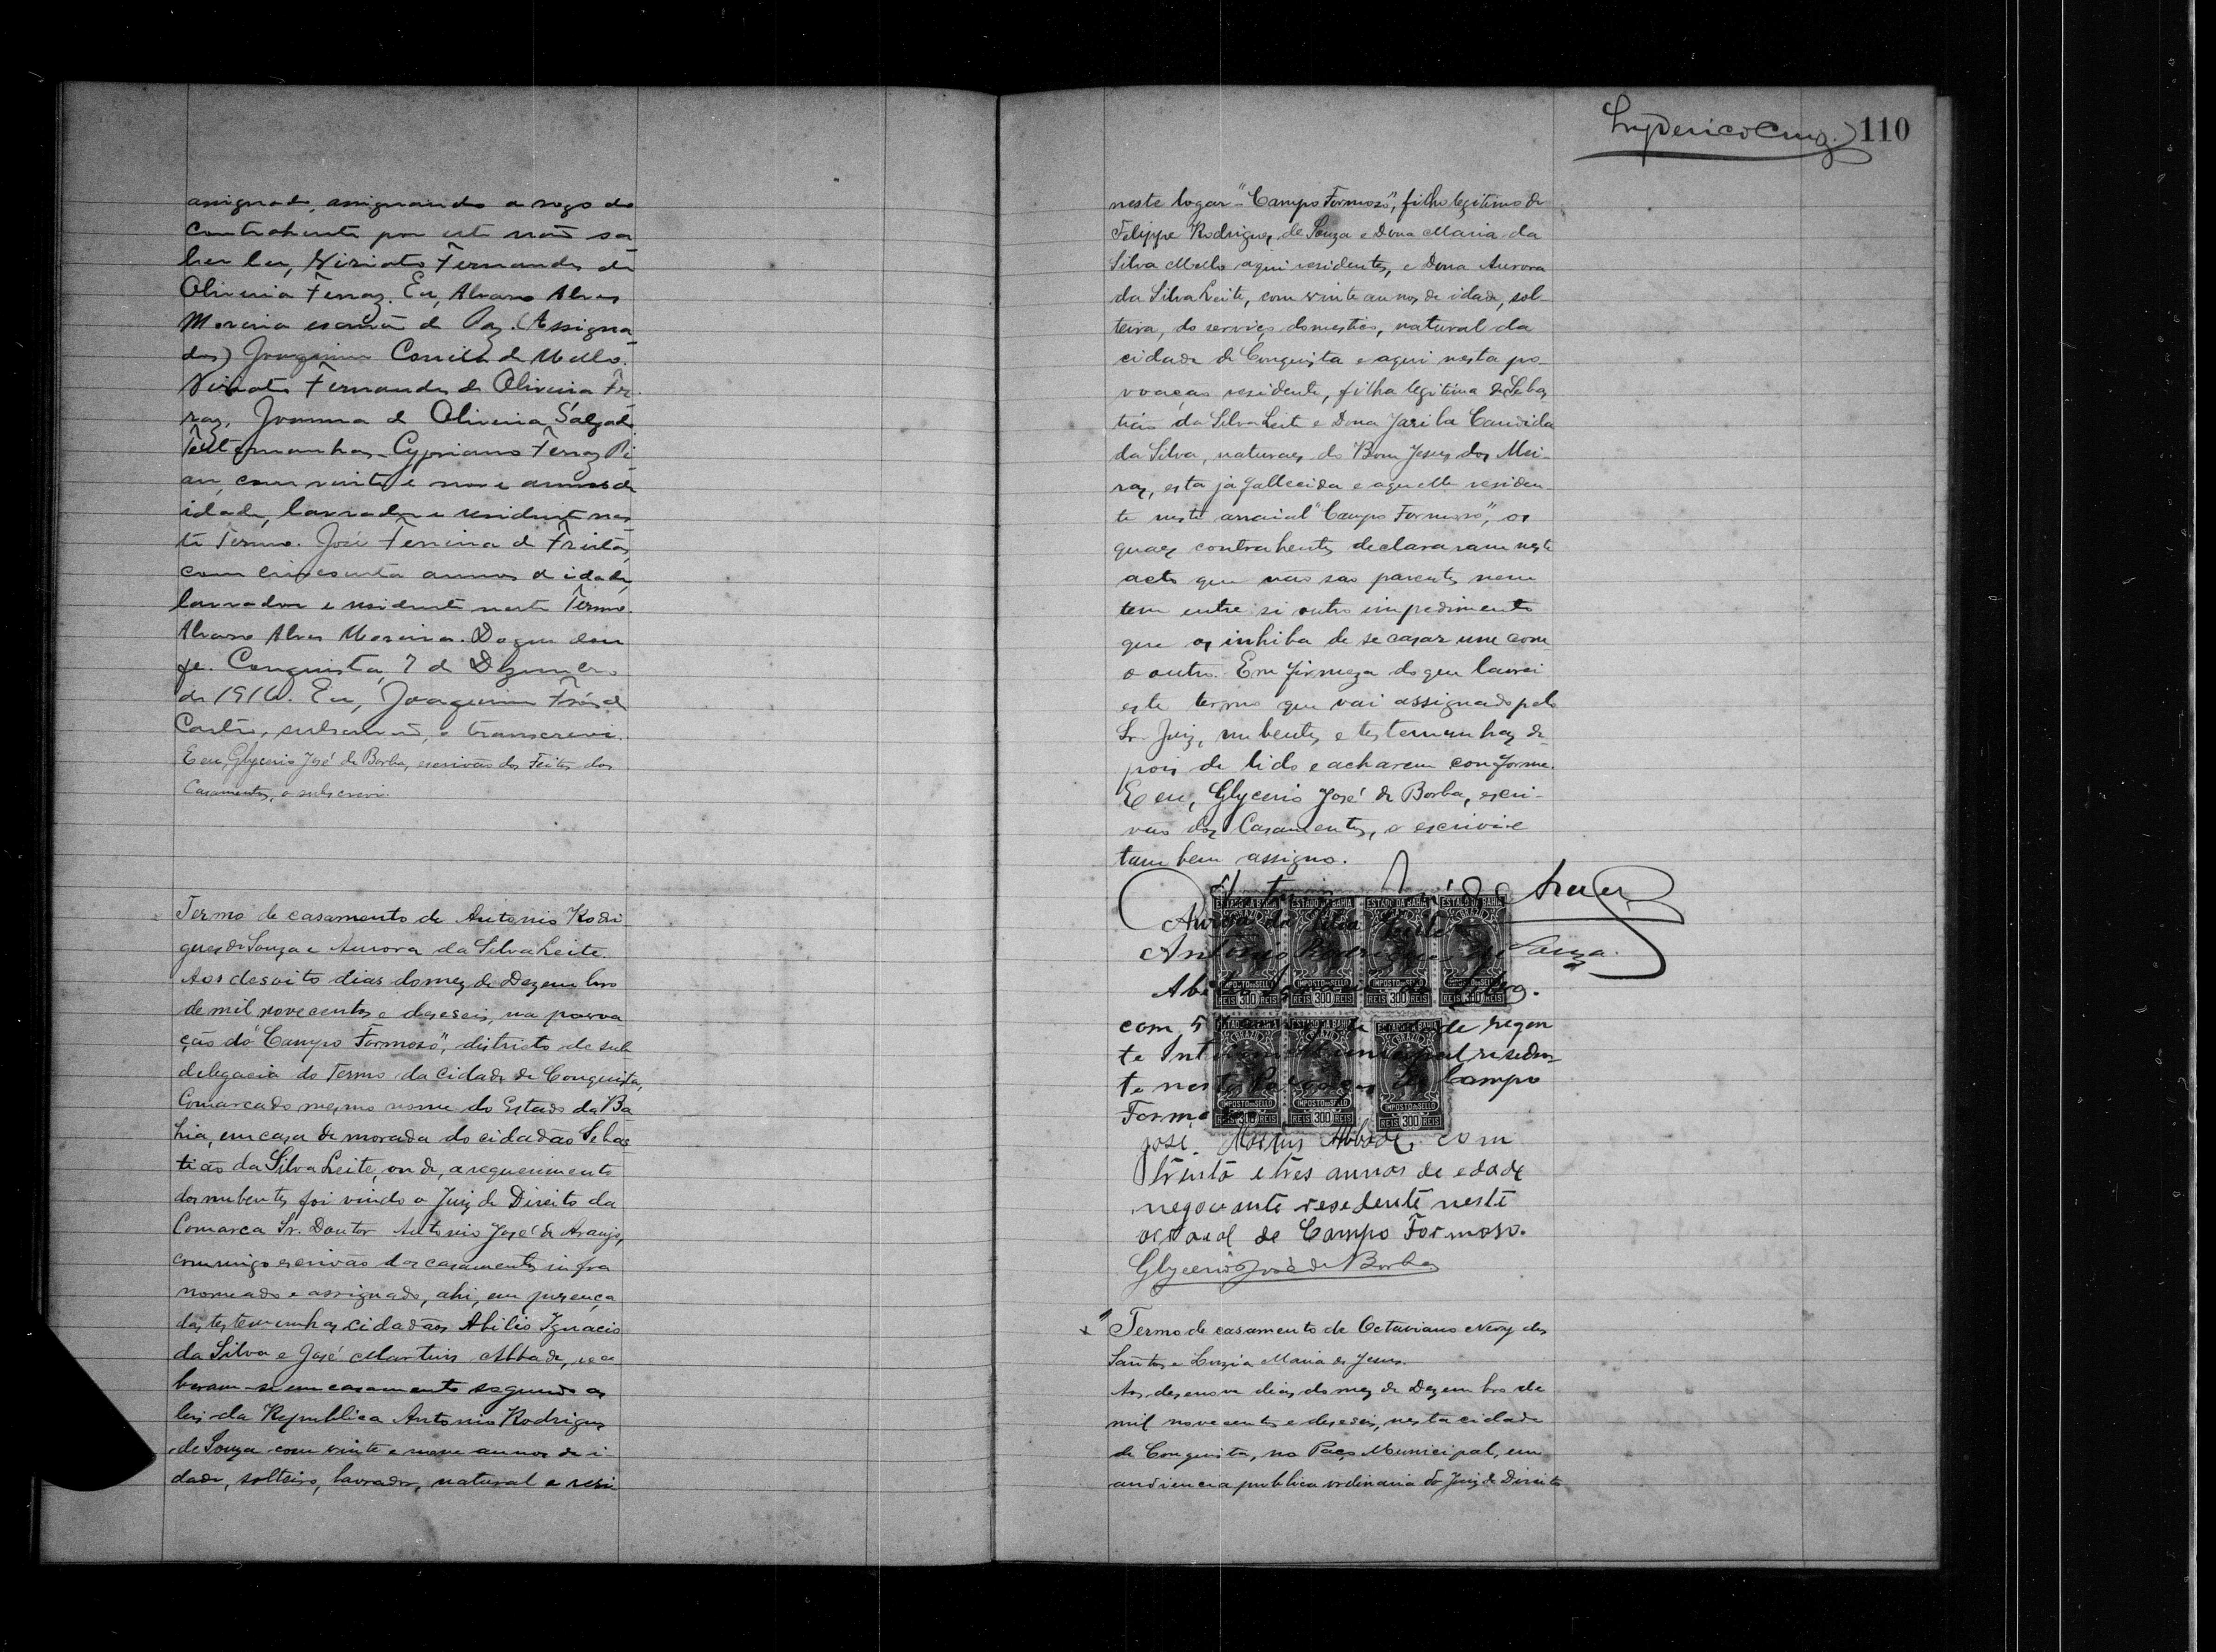 assignado, assignando a rogo do
contrahente por este não sa
ber ler, Viriato Fernandes de
Oliveira Ferraz. Eu, Alvaro Alves
Moreira escrivão de Paz. (Assigna
dos) Joaquim Correia de Mello.
Viriato Fernandes de Oliveira Fer
raz, de Oliveira Salgado.
Testemunhas Cypriano Ferraz
com vinte e nove annos de
idade, lavrador e residente nes
te Termo. José Ferreira de Freitas,
com cincoenta annos de idade,
lavrador e residente neste Termo.
Alvaro Alves Moreira. Do que dou
fe. Conquista, 7 de Dezembro
de 1916. Eu, Joaquim Fróes de
Castro, o transcrevi.
E eu, Glycerio José de Borba, escrivão dos Feitos dos
Casamentos, o subscrevi.
Termo de casamento de Antonio Rodri
gues de Souza e Aurora da Silva Leite.
Aos desoito dias do mez de Dezembro
de mil novecentos e deseseis, na povoa
ção do "Campo Formoso", districto de sub
delegacia do Termo da Cidade de Conquista,
Comarca do mesmo nome do Estado da Ba
hia, em casa de morada do cidadão Sebas
tião da Silva Leite, onde, a requerimento
dos nubentes foi vindo o Juiz de Direito da
Comarca Sr. Doutor Antonio José de Araujo,
commigo escrivão dos casamentos infra
nomeado e assignado, ahi, em presença
das testemunhas cidadãos Abilio Ignacio
da Silva e José Martins Abbade, rece
beram-se em casamento segundo as
leis da Republica Antonio Rodrigues
de Souza com vinte e nove annos de i-
dade, solteiro, lavrador, natural e resi
110
neste logar "Campo Formoso", filho legitimo de
Felippe Rodrigues de Souza e Dona Maria da
Silva Mello aqui residentes, e Dona Aurora
da Silva Leite, com vinte annos de idade, sol-
teira, do serviço domestico, natural da
cidade de Conquista e aqui nesta po-
voação residente, filha legitima de Sebas
tião da Silva Leite e Dona Candida
da Silva, naturaes do Bom Jesus dos Mei-
ras, esta já fallecida e aquelle residen-
te neste arraial "Campo Formoso", os
quaes contrahentes declararam neste
acto que não são parentes nem
tem entre si outro impedimento
que os inhiba de se casar um com
o outro. Em firmeza do que lavrei
este termo que vai assignado pelo
Sr. Juiz, nubentes, e testemunhas de
pois de lido e acharem conforme.
E eu, Glycerio José de Borba, escri-
vão dos Casamentos, o escrevi e
tambem assigno.
Aurora da Silva Leite
Antonio Rodrigues de Souza.
ESTADO DA BAHIA ESTADO DA BAHIA ESTADO DA BAHIA ESTADO DA BAHIA
IMPOSTO DO SELLO IMPOSTO DO SELLO IMPOSTO DO SELLO IMPOSTO DO SELLO
REIS 300 REIS REIS 300 REIS REIS 300 REIS REIS 300 REIS
com de regen
te Municipal residen
te nesta Campo
Formoso
IMPOSTO DO SELLO IMPOSTO DO SELLO IMPOSTO DO SELLO
REIS 300 REIS REIS 300 REIS REIS 300 REIS
José Martins Abbade, com
trinta e três annos de edade
negociante resedente neste
de Campo Formoso.
Glycerio José de Borba
Termo de casamento de Octaviano Nery dos
Santos e Luzia Maria de Jesus.
Aos desenove dias do mez de Dezembro de
mil novecentos e deseseis, nesta cidade
de Conquista, no Paço Municipal, em
audiencia publica ordinaria do Juiz de Direito